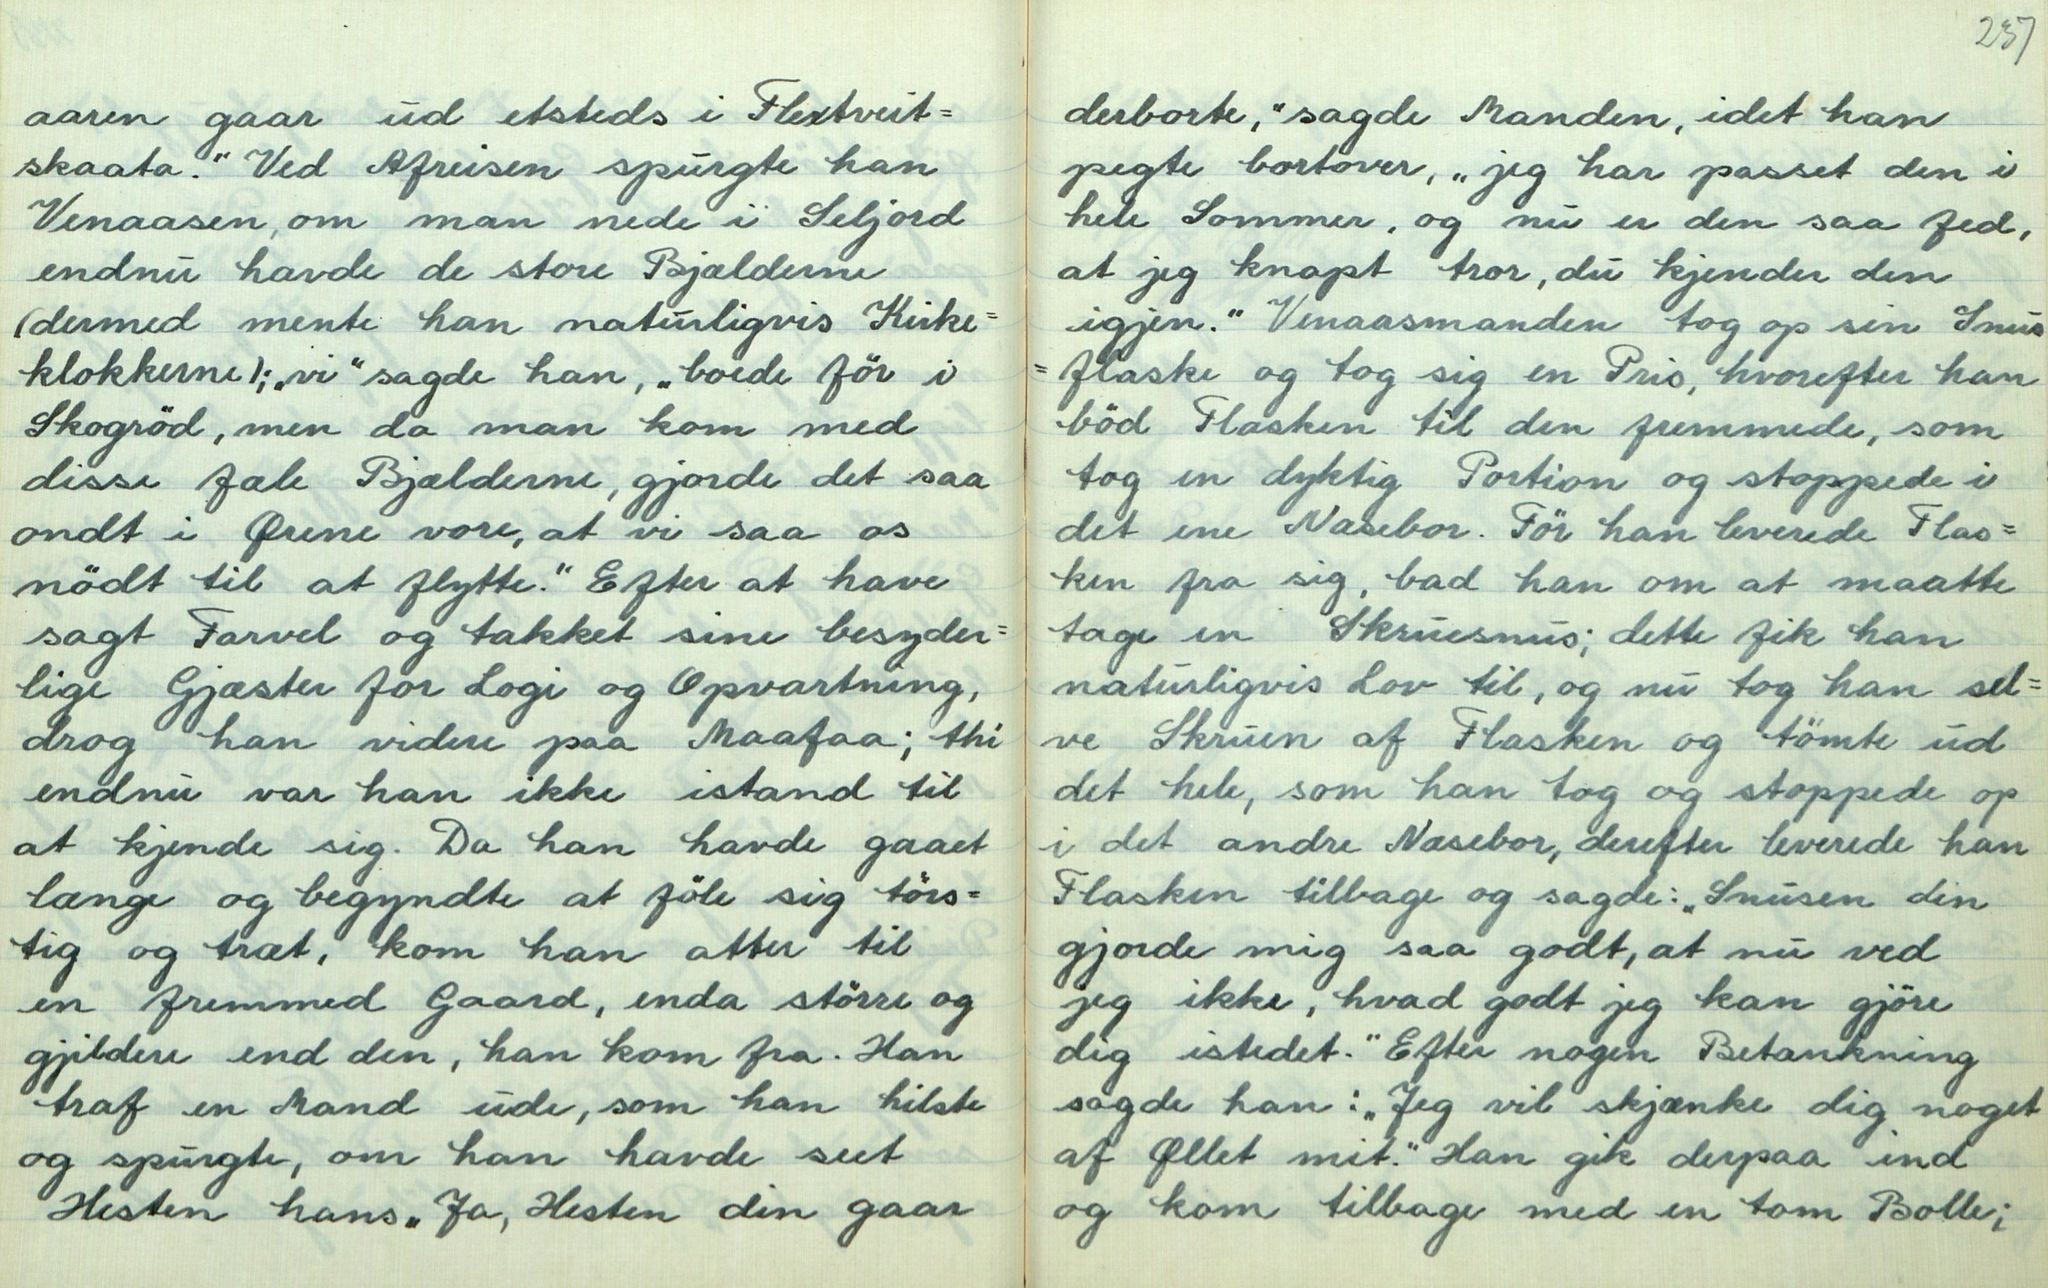 aaren gaar ud etsteds i Flextveit=
skaata." Ved Afreisen spurgte han
Venaasen, om man nede i Seljord
endnu havde de store Bjælderne
(dermed mente han naturligvis Kirke=
klokkerne); „vi" sagde han, „boede för i
Skogröd, men da man kom med
disse fæle Bjælderne, gjorde det saa
ondt i Ørene vore, at vi saa os
nödt til at flytte." Efter at have
sagt Farvel og takket sine besynder=
lige Gjæster for Logi og Opvartning,
drog han videre paa Maafaa; thi
endnu var han ikke istand til
at kjende sig. Da han havde gaaet
længe og begyndte at föle sig törs=
tig og træt, kom han atter til
en fremmed Gaard, enda större og
gjildere end den, han kom fra. Han
traf en Mand ude, som han hilste
og spurgte, om han havde seet
Hesten hans. „Ja, Hesten din gaar
237
derborte," sagde Manden, idet han
pegte bortover, „jeg har passet den i
hele Sommer, og nu er den saa fed,
at jeg knapt tror, du kjender den
igjen." Venaasmanden tog op sin Snus
=flaske og tog sig en Pris, hvorefter han
böd Flasken til den fremmede, som
tog en dyktig Portion og stoppede i
det ene Næsebor. För han leverede Flas=
ken fra sig, bad han om at maatte
tage en Skruesnus; dette fik han
naturligvis Lov til, og nu tog han sel=
ve Skruen af Flasken og tömte ud
det hele, som han tog og stoppede op
i det andre Næsebor, derefter leverede han
Flasken tilbage og sagde: „Snusen din
gjorde mig saa godt, at nu ved
jeg ikke, hvad godt jeg kan gjöre
dig istedet." Efter nogen Betænkning
sagde han: „Jeg vil skjænke dig noget
af Øllet mit." Han gik derpaa ind
og kom tilbage med en tom Bolle;